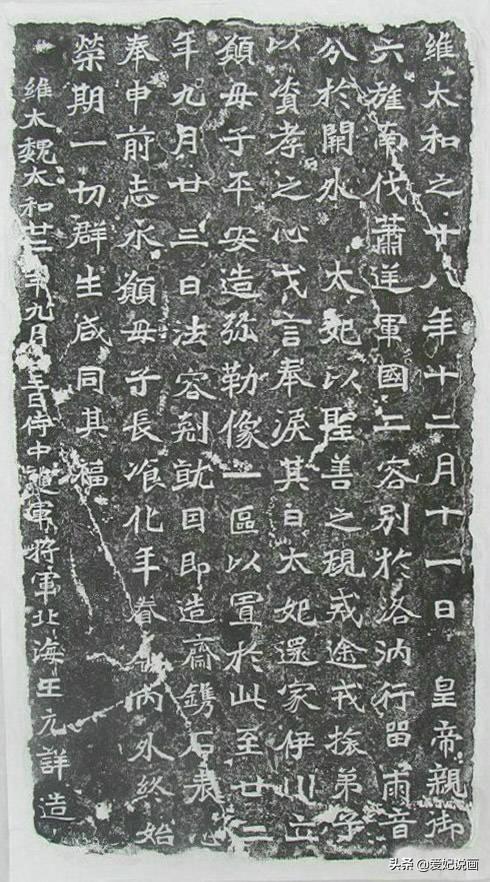 維太和之十八年十二月十一日皇帝親御
六旌南伐蕭逆軍國二容別於洛汭行留兩音
分於闕外太妃以聖善之規戒途戒旅弟子
以資孝之心戈言奉淚其日太妃還家伊川立
願母子平安造弥勒像一區以置於此至廿二
年九月廿三日法容剋就因即造齋鐫石表心
奉申前志永願母子長飡化年眷内外終始
榮期一切群生咸同其福
維大魏太和廿二年九月廿三日侍中護軍將軍北海王元詳造
头条 @爱妃说画